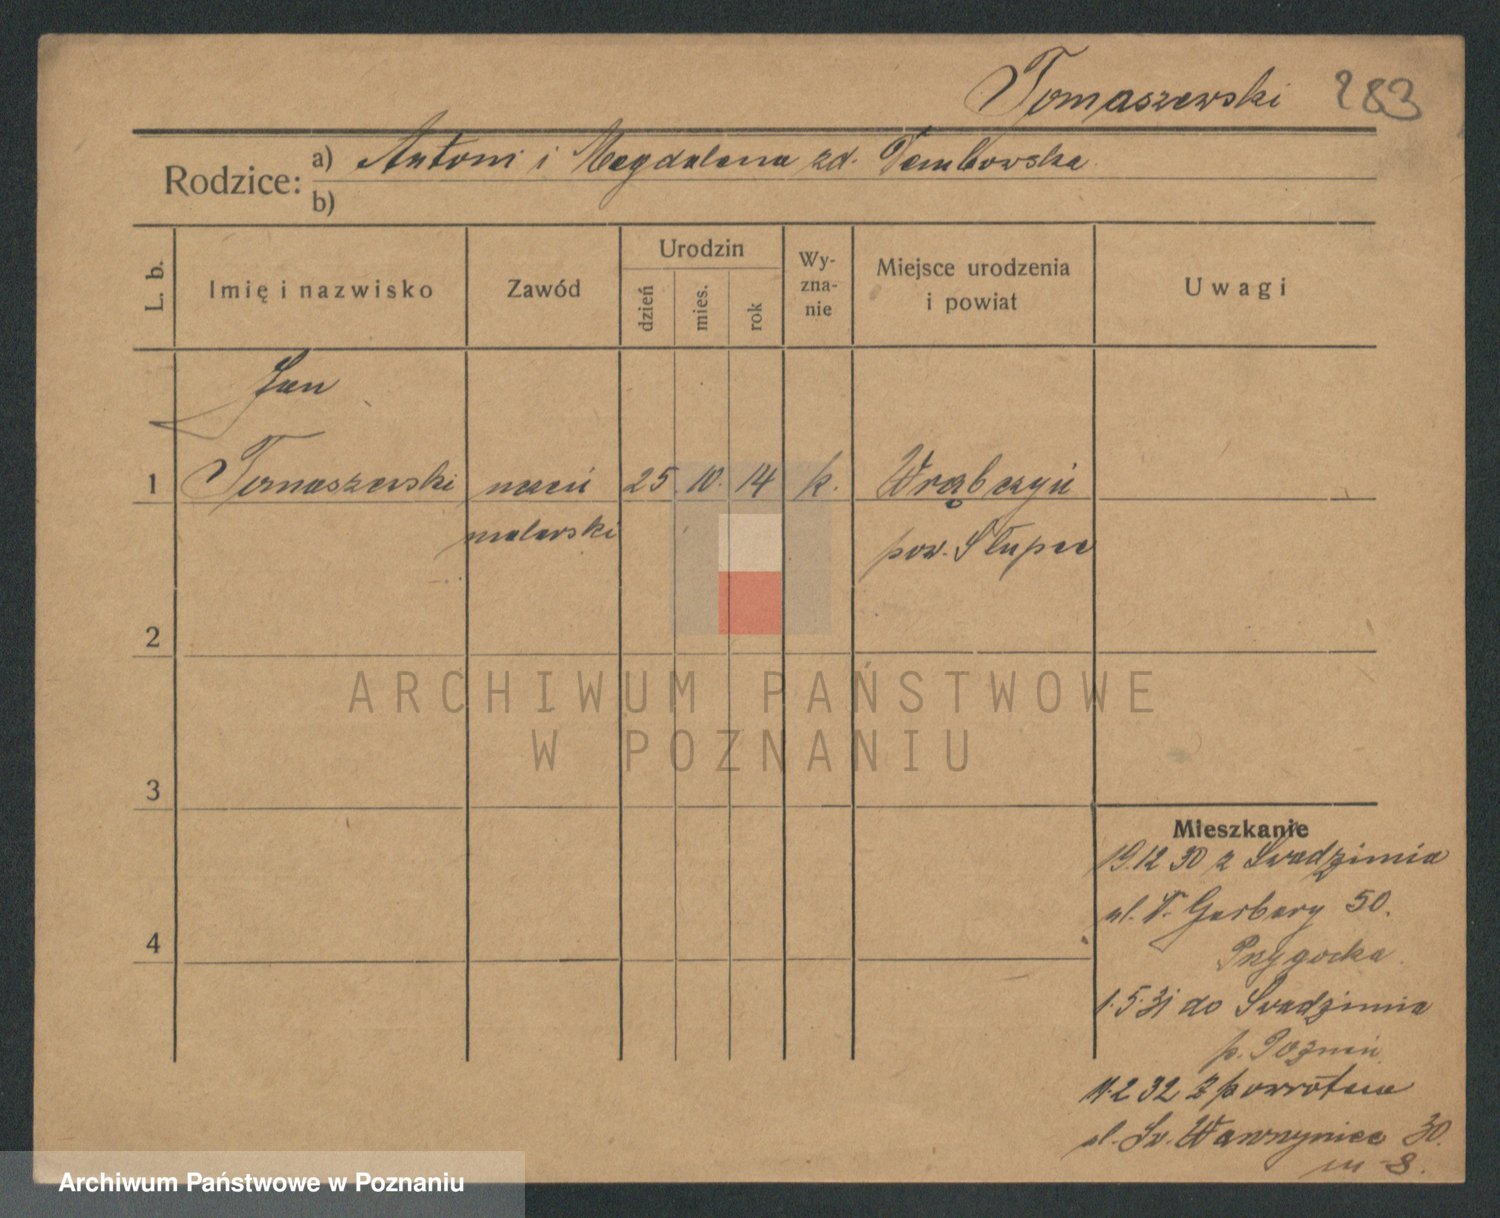 Tomaszewski 283
Rodzice: a) Antoni i Magdalena zd. Dembowska
b)
L. b.
Imię i nazwisko
Zawód
Urodzin
dzień
mies.
rok
Wy-
zna-
nie
Miejsce urodzenia
i powiat
Uwagi
Jan
1 Tomaszewski uczeń 25. 10. 14 k. Wrąbczyń
malarski pow. Słupca
2
ARCHIWUM PAŃSTWOWE
W POZNANIU
3
Mieszkanie
19.12 30 z Swadzimia
ul. T. Garbary 50.
Przygocka.
4
1.5.31 do Swadzimia
p. Poznań
11.2 32 z powrotem
ul. Św. Wawrzyniec 30.
m 8.
Archiwum Państwowe w Poznaniu